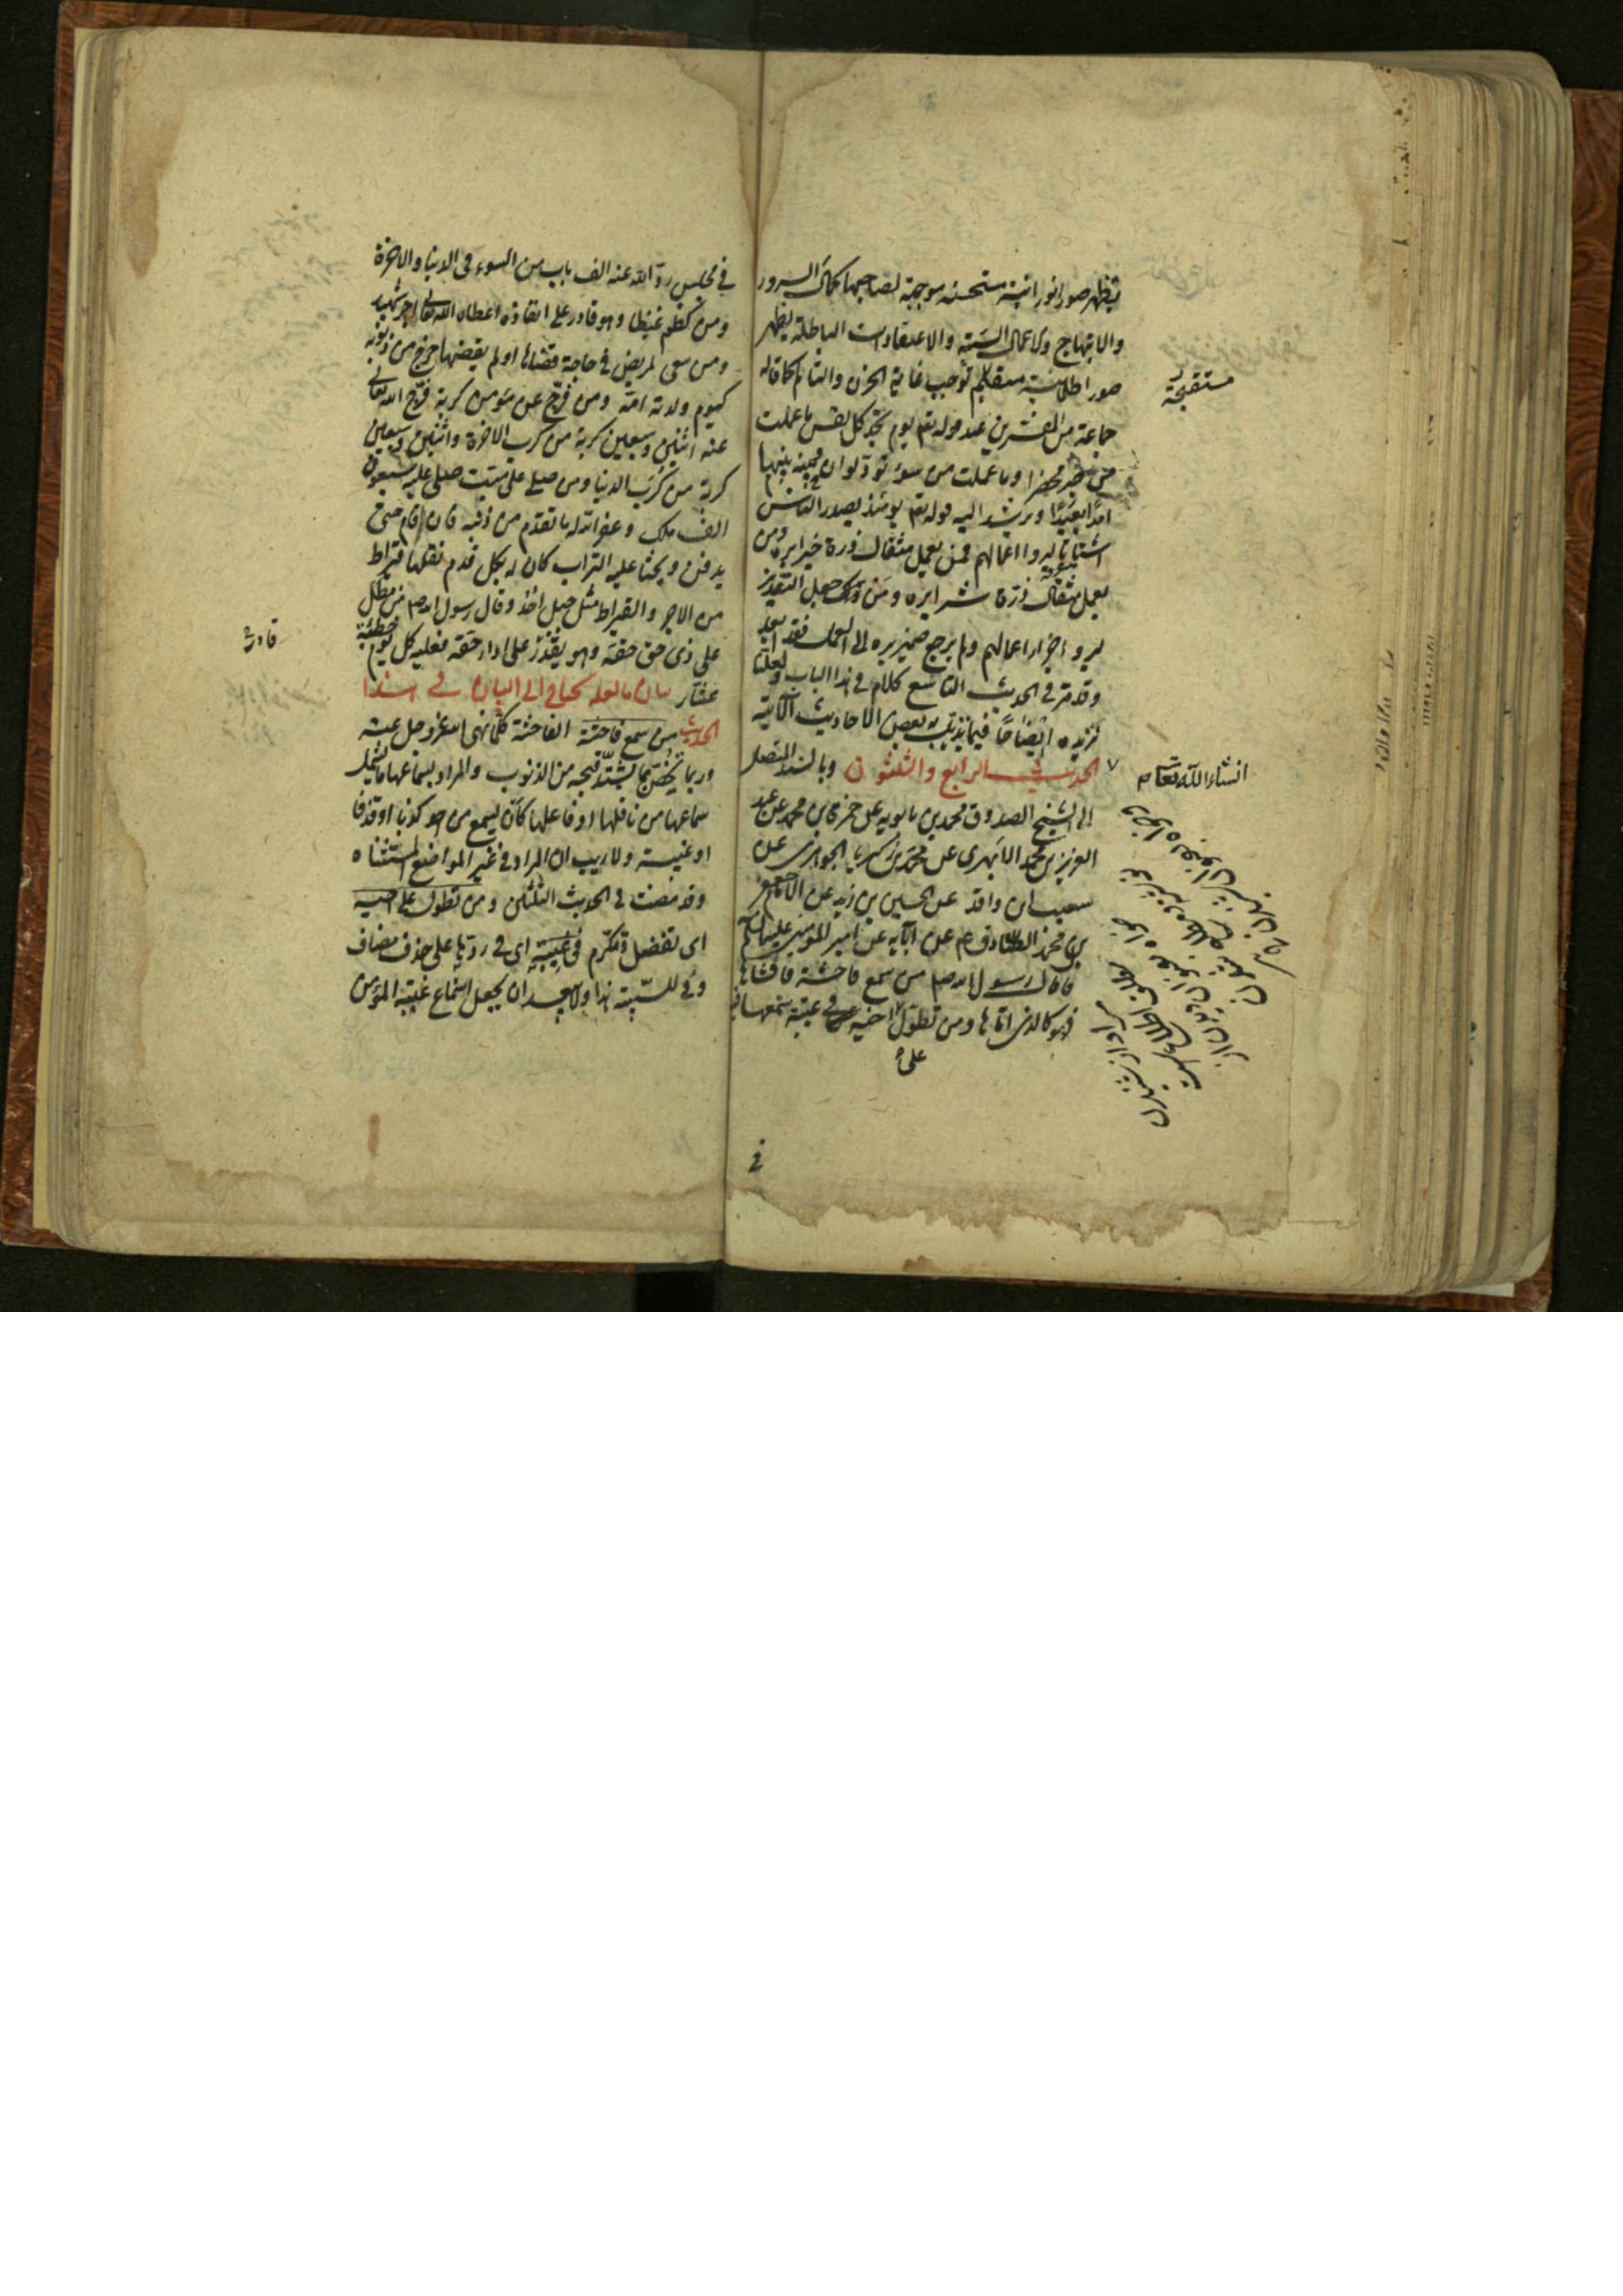 تظهر صورا نورانية مستحسنة موجبة لصاحبها كمال السرور
والابتهاج والاعمال السيئة والاعتقادات الباطلة يظهر
صورا ظلمانية توجب غاية الحزن والتالم كما قاله
جماعة من المفسرين عند قوله تعم يوم تجد كل نفس ما عملت
من خير محضرا وما عملت من سوء تود لو ان بينها وبينه
امدا بعيدا ويرشد اليه قوله تعم يومئذ يصدر الناس
اشتاتا ليروا اعمالهم فمن يعمل مثقال ذرة خيرا يره ومن
يعمل مثقال ذرة شرا يره ومن جعل التقدير
ليروا جزاء اعمالهم ولم يرجع ضمير يره الى العمل فقد ابعد
وقد مر في الحديث التاسع كلام في هذا الباب ولعلنا
نزيده ايضاحا فيما نذيل به بعض الاحاديث الآتية
الحديث الرابع والثلثون وبالسند المتصل
الى الشيخ الصدوق محمد بن بابويه عن حمزة بن محمد عن عبد
العزيز بن محمد الابهري عن محمد بن زكريا الجواهري عن
شعيب بن واقد عن الحسين بن زيد عن الامام جعفر
بن محمد الصادق عم عن آبائه عن امير المؤمنين عليهم السلام
قال قال رسول الله صم من سمع فاحشة فافشاها
فهو كالذي اتاها ومن تطول اخيه في غيبة سمعها فيه
على
في
مستقبحة
انشاء الله تعالى
في مجلس رد الله عنه الف باب من السوء في الدنيا والاخرة
ومن كظم غيظا وهو قادر على انفاذه اعطاه الله تعالى اجر شهيد
ومن سعى لمريض في حاجة قضاها او لم يقضها خرج من ذنوبه
كيوم ولدته امه ومن فرج عن مؤمن كربة فرج الله تعالى
عنه اثنين وسبعين كربة من كرب الاخرة واثنين وسبعين
كربة من كرب الدنيا ومن صلى على ميت صلى عليه سبعون
الف ملك وغفر الله له ما تقدم من ذنبه فان اقام حتى
يدفن ويحثا عليه التراب كان له بكل قدم نقلها قيراط
من الاجر والقيراط مثل جبل احد وقال رسول الله صم من مطل
على ذي حق حقه وهو يقدر على اداء حقه فعليه كل يوم خطيئة
عشار بيان ما لعله يحتاج الى البيان في هذا
الحديث من سمع فاحشة الفاحشة كلما نهى الله عز وجل عنه
وربما يختص بما يشتد قبحه من الذنوب والمراد بسماعها ما يشمل
سماعها من ناقلها او فاعلها كأن يسمع من احد كذبا او قذفا
او غيبة ولا ريب ان المراد في غير المواضع المستثناه
وقد مضت في الحديث الثلثين ومن تطول على اخيه
اي تفضل وتكرم في غيبة اي في ردها على حذف مضاف
وفي للسببية هذا ولا يبعد ان يجعل استماع غيبة المؤمن
قادر